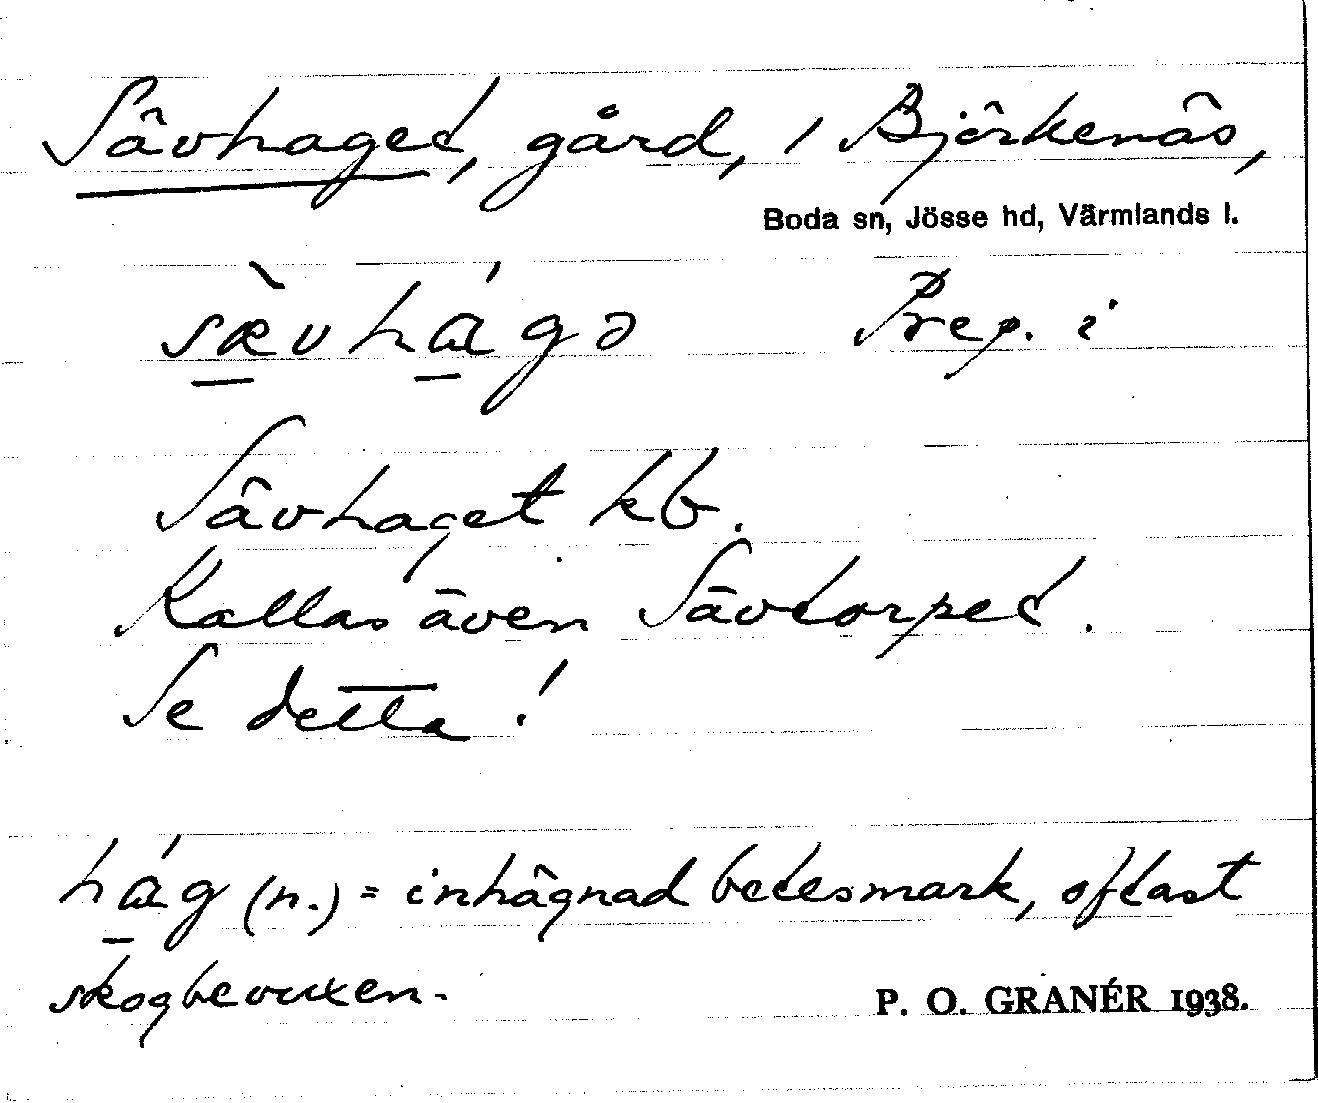 Sävhaget, gård, i Björkenäs,
Boda sn, Jösse hd, Värmlands l.
sæ̀vhágə Prep. i
Sävhaget kb.
Kallas även Sävtorpet.
Se detta!
hág (n.) = inhägnad betesmark, oftast
skogbevuxen.
P. O. GRANÉR 1938.